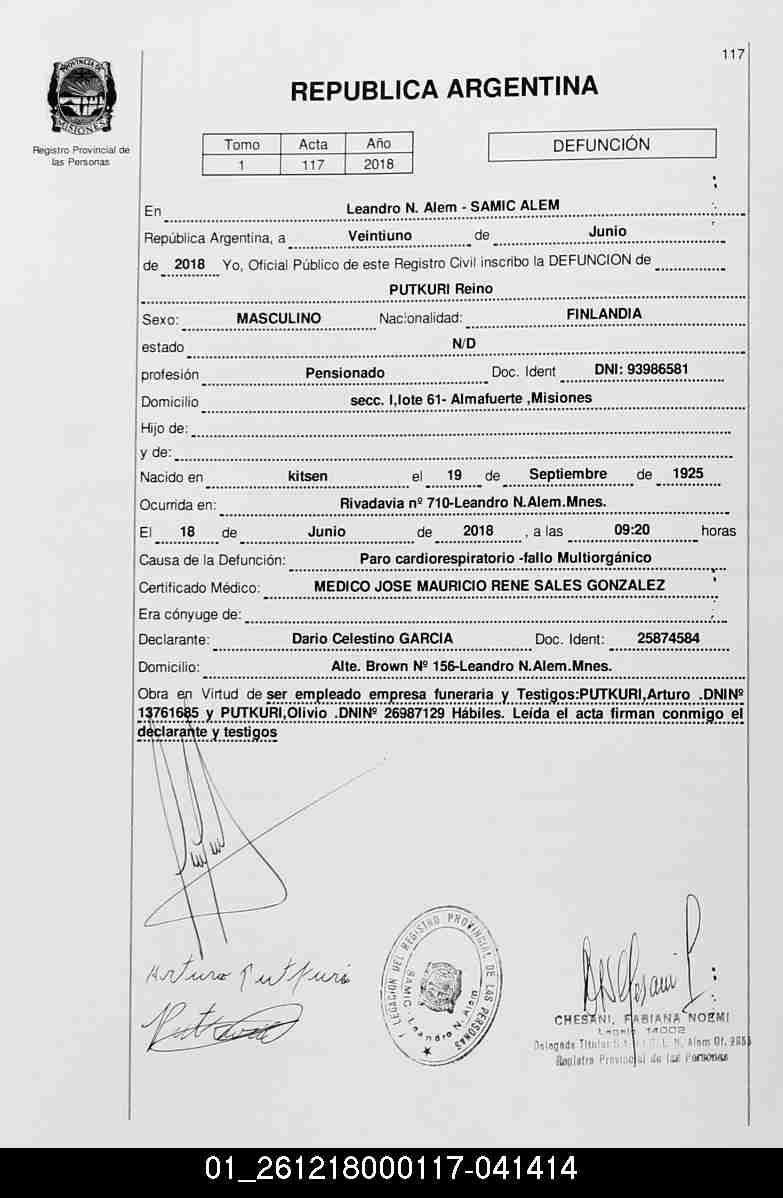 117
PROVINCIA DE
MISIONES
Registro Provincial de
las Personas
REPUBLICA ARGENTINA
Tomo Acta Año
1 117 2018
DEFUNCIÓN
En Leandro N. Alem - SAMIC ALEM
República Argentina, a Veintiuno de Junio
de 2018 Yo, Oficial Público de este Registro Civil inscribo la DEFUNCION de
PUTKURI Reino
Sexo: MASCULINO Nacionalidad: FINLANDIA
estado N/D
profesión Pensionado Doc. Ident DNI: 93986581
Domicilio secc. I,lote 61- Almafuerte ,Misiones
Hijo de:
y de:
Nacido en kitsen el 19 de Septiembre de 1925
Ocurrida en: Rivadavia nº 710-Leandro N.Alem.Mnes.
El 18 de Junio de 2018 , a las 09:20 horas
Causa de la Defunción: Paro cardiorespiratorio -fallo Multiorgánico
Certificado Médico: MEDICO JOSE MAURICIO RENE SALES GONZALEZ
Era cónyuge de:
Declarante: Dario Celestino GARCIA Doc. Ident: 25874584
Domicilio: Alte. Brown Nº 156-Leandro N.Alem.Mnes.
Obra en Virtud de ser empleado empresa funeraria y Testigos:PUTKURI,Arturo .DNINº
13761685 y PUTKURI,Olivio .DNINº 26987129 Hábiles. Leída el acta firman conmigo el
declarante y testigos
Arturo Putkuri
DELEGACION DEL REGISTRO PROVINCIAL DE LAS PERSONAS
SAMIC - Leandro N. Alem
CHESANI, FABIANA NOEMI
Legajo 14002
Delegada Titular L. N. Alem Of.
Registro Provincial de las Personas
01_261218000117-041414